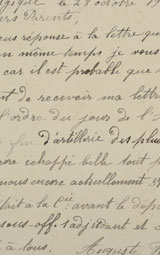 gique le 29 octobre 19
ers Parents,
ous réponse à la lettre que
en même temps je vous
car il est probable que
nt de recevoir ma lettre
l'ordre du jour de l'
feu d'artillerie des plus
ore échappé belle tout
nous encore actuellement 35
fait à la Cie: avant le dép
sous-off. 1 adjudant et
à tous. Auguste